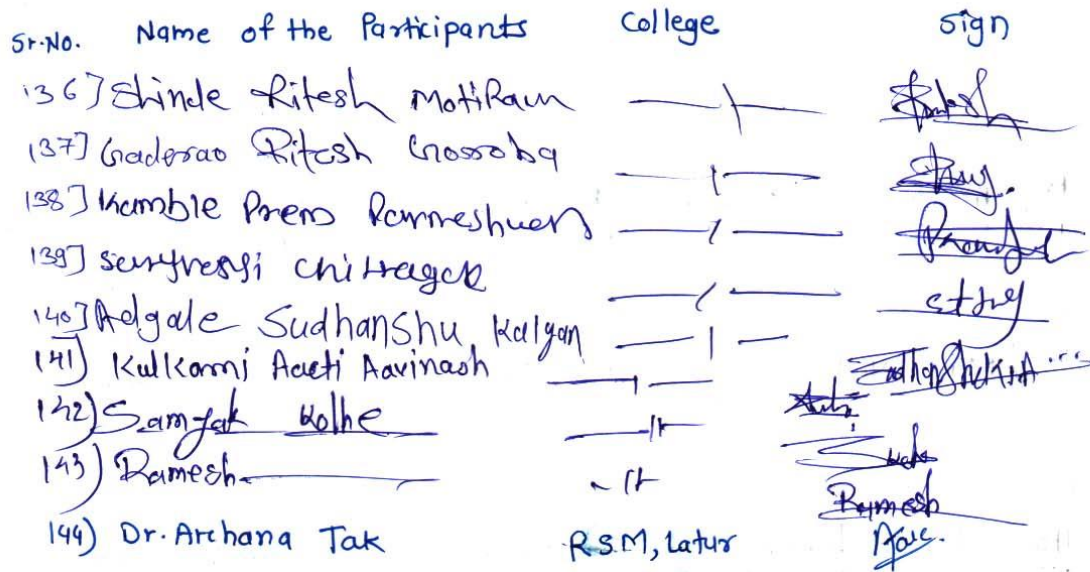 Sr.No. Name of the Participants College Sign
136] Shinde Ritesh MotiRam —|— Ritesh
137] Gaderao Ritesh Gosroba —|—
138] Kamble Prem Parmeshwer —/—
139] chitragar —/—
140] Adgale Sudhanshu Kalyan —|—
141) Kulkarni Aarti Aavinash —|—
142) Samyak Kolhe —11—
143) Ramesh - 11 Ramesh
144) Dr. Archana Tak R.S.M, Latur